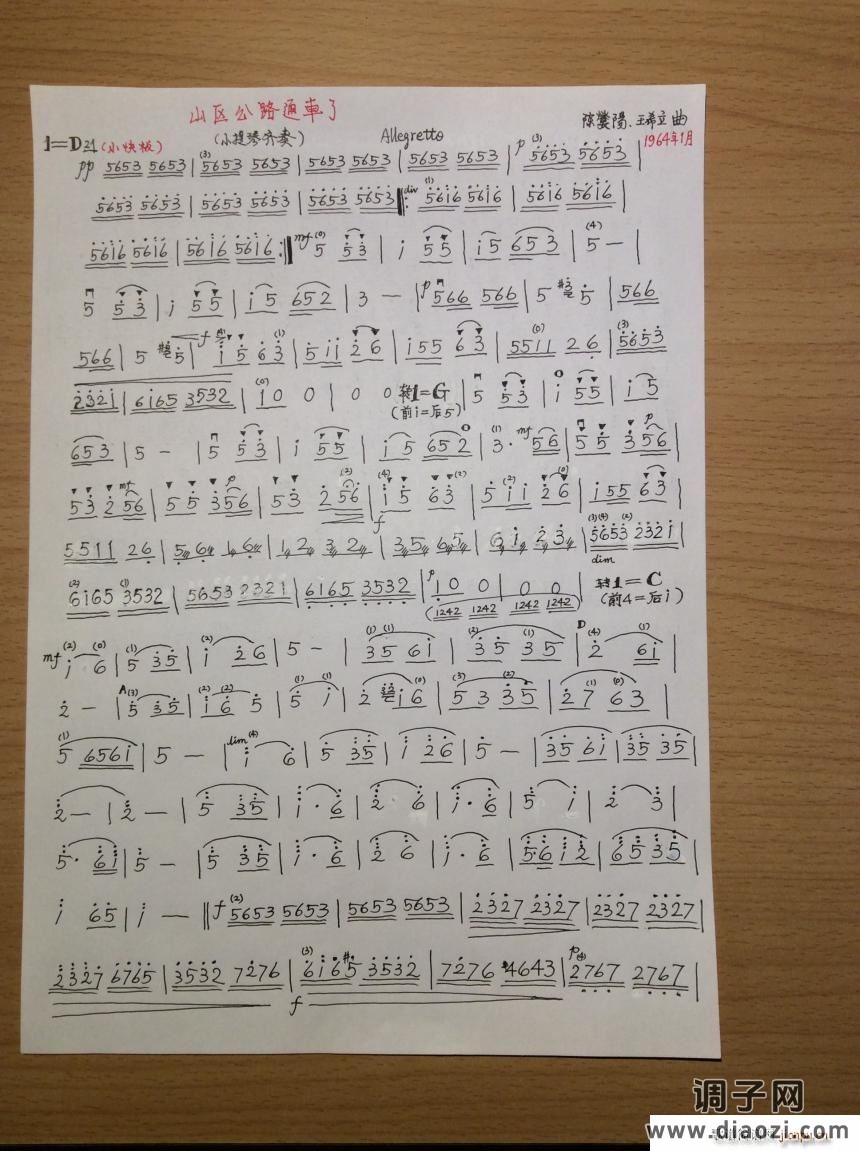 山区公路通車了
1=D 2/4 (小快板) (小提琴齐奏) Allegretto 王希立曲
1964年1月
pp 5653 5653 | 5653 5653 | 5653 5653 | 5653 5653 | p 5653 5653 |
5653 5653 | 5653 5653 | 5653 5653 |: div 5616 5616 | 5616 5616 |
5616 5616 | 5616 5616 :| mf 5 53 | i 55 | i5 653 | 5 — |
5 53 | i 55 | i5 652 | 3 — | p 566 566 | 5 5 | 566
566 | 5 5 | f i5 63 | 5ii 26 | i55 63 | 5511 26 | 5653
2321 | 6165 3532 | 10 0 | 0 0 转1=G | 5 53 | i 55 | i 5
(前i=后5)
653 | 5 — | 5 53 | i 55 | i5 652 | 3· mf 56 | 55 356 |
53 256 | 55 356 | 53 256 | f i5 63 | 5ii 26 | i55 63 |
5511 26 | 56 16 | 12 32 | 35 65 | 6i 23 | 5653 2321 |
dim
6165 3532 | 5653 2321 | 6165 3532 | p 10 0 | 0 0 转1=C
(1242 1242 1242 1242) (前4=后i)
mf i 6 | 5 35 | i 26 | 5 — | 35 6i | 35 35 | 2 6i |
2 — | 5 35 | i6 5 | 5 i | 2 i6 | 53 35 | 27 63 |
5 656i | 5 — | dim i 6 | 5 35 | i 26 | 5 — | 35 6i | 35 35 |
2 — | 2 — | 5 35 | i· 6 | 2 6 | i· 6 | 5 i | 2 3 |
5· 6i | 5 — | 5 35 | i· 6 | 2 6 | i· 6 | 56i2 | 65 35 |
i 65 | i — || f 5653 5653 | 5653 5653 | 2327 2327 | 2327 2327 |
2327 6765 | 3532 7276 | 6i65 3532 | 7276 4643 | p 2767 2767 |
f
调子网
www.diaozi.com